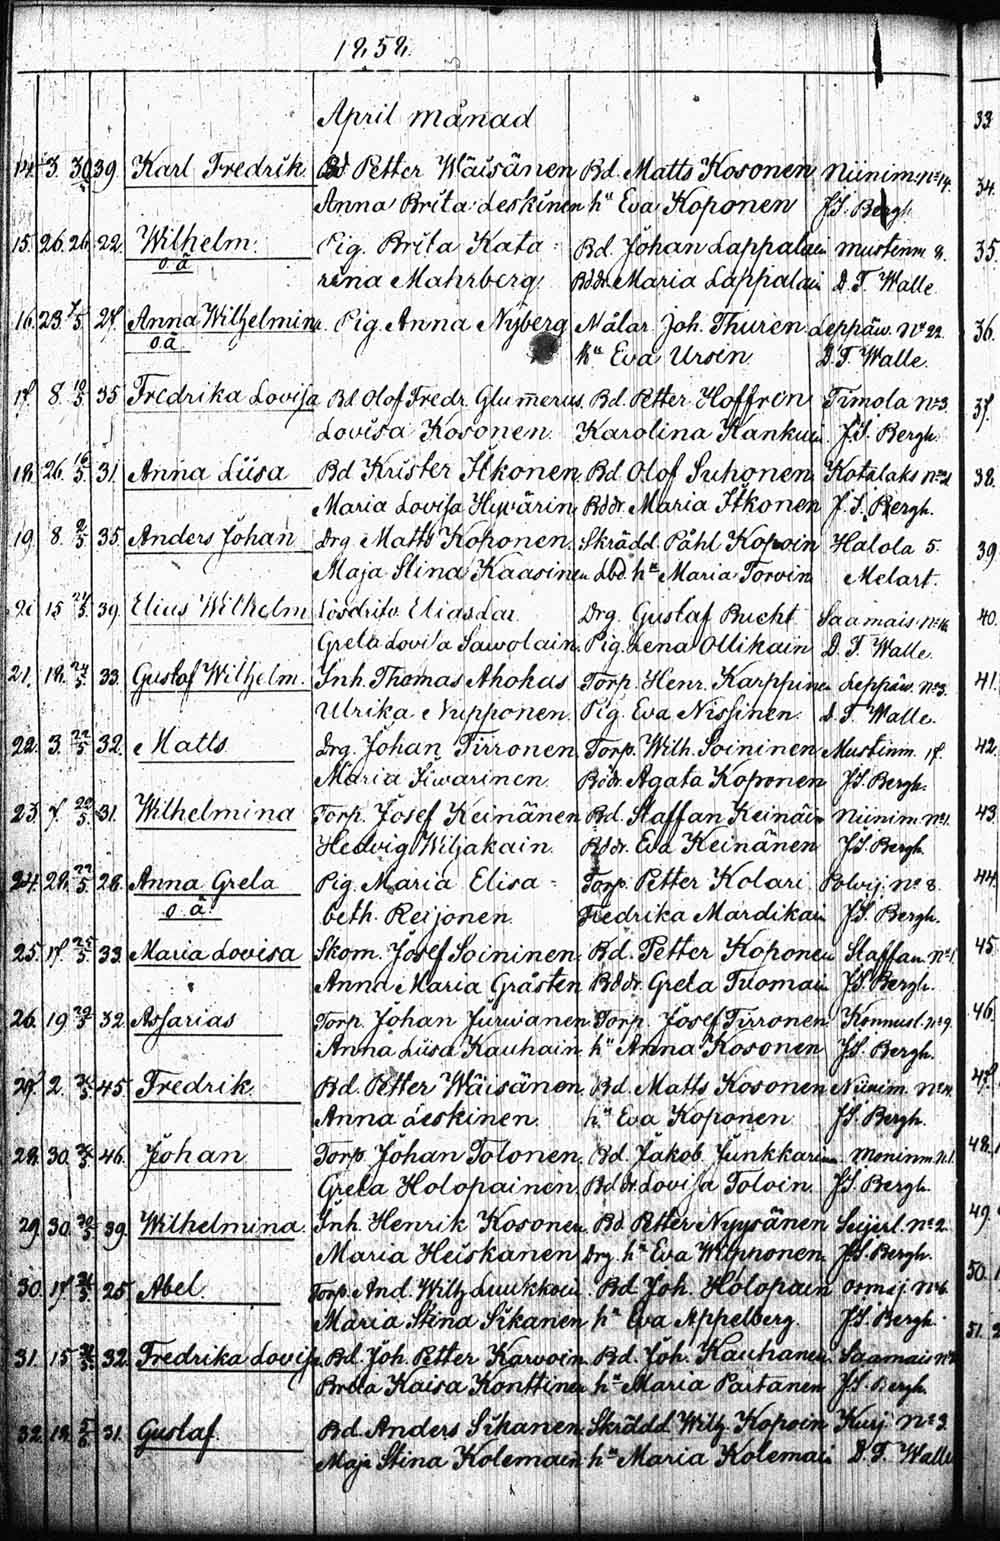 1858.
April månad
14. 3. 30/5 39. Karl Fredrik. Bd Petter Wäisänen Bd. Matts Kosonen Niinim: No 14.
Anna Brita Leskinen hu Eva Koponen J.S. Bergh.
15. 26. 26. 22. Wilhelm. Pig. Brita Kata= Bd. Johan Lappalain Mustinm 8.
o.ä rina Mahrberg. Bddr Maria Lappalain D.T. Walle
16. 23. 1/5 27. Anna Wilhelmina. Pig. Anna Nyberg Målar. Joh. Thuren Leppäw. No 22.
o.ä hu Eva Ursin D.T. Walle.
17. 8. 10/5 35 Fredrika Lovisa Bd Olof Fredr. Glumerus. Bd. Petter Hoffren Timola No 3.
Lovisa Kosonen. Karolina Kankuin. J.S. Bergh.
18. 26. 16/5 31. Anna Liisa Bd Krister Itkonen. Bd. Olof Suhonen Kotalaks No
Maria Lovisa Hyvärin. Bddr. Maria Itkonen J.S. Bergh.
19. 8. 2/5 35 Anders Johan Drg. Matts Koponen. Skrädd. Påhl Kopoin Halola 5.
Maja Stina Kaasinen Lbd. hu Maria Torvin Melart.
15 39. Elias Wilhelm Lösdrifv. Elias Lar Drg. Gustaf Bucht Saamais. No
Greta Lovisa Sawolain. Pig. Lena Ollikain D.T. Walle.
21. 18. 24/5 33. Gustaf Wilhelm. Inh. Thomas Ahokas Torp. Henr. Karppinen Leppäw. No 3.
Ulrika Nupponen. Pig. Eva Nissinen. D.T. Walle.
22. 3. 22/5 32. Matts Drg. Johan Tirronen. Torp. Wilh. Soininen Mustinm. 17.
Maria Siwarinen. Bddr. Agata Koponen J.S. Bergh.
23. 7. 22/5. 31. Wilhelmina Torp. Josef Keinänen Bd. Staffan Keinäin Niinim. No 1.
Hedvig Wiljakain. Bddr. Eva Keinänen J.S. Bergh
24. 28. 22/5 28. Anna Greta Pig. Maria Elisa= Torp. Petter Kolari Polvij. No 8.
o.ä. beth. Reijonen. Fredrika Mardikain J.S. Bergh.
25. 17. 25/5 33. Maria Lovisa Skom. Josef Soininen. Bd. Petter Koponen Staffan. No 1.
Anna Maria Gråsten Bddr. Greta Tuomain J.S. Bergh.
26. 19 29/5 32. Assarias Torp. Johan Jurwanen Torp. Josef Tirronen Konnusl. No 9.
Anna Liisa Kauhain. hu Anna Kosonen J.S. Bergh.
27. 2. 45. Fredrik Bd. Petter Wäisänen. Bd. Matts Kosonen Niinim. No 14.
Anna Leskinen. hu Eva Koponen J.S. Bergh.
28. 30. 46. Johan Torp. Johan Tolonen. Bd. Jakob Junkkarin Moninm. N. 1.
Greta Holopainen. Bddr. Lovisa Toloin J.S. Bergh.
29. 30. 30/5 39. Wilhelmina. Inh. Henrik Kosonen. Bd Petter Nyysänen Seijerl. No 2.
Maria Heiskanen. Drg. hu Eva Wilponen. J.S. Bergh.
30. 17. 25. Abel. Torp. And. Wilh. Luukkain Bd. Joh. Holopain Ormaj. No 6.
Maria Stina Sikanen hu Eva Appelberg. J.S. Bergh.
31. 15 32. Fredrika Lovisa. Bd. Joh. Petter Karvoin. Bd. Joh. Kauhanen. Saamais No
Brita Kaisa Konttinen hu Maria Partanen J.S. Bergh.
32. 18. 5/6 31. Gustaf. Bd. Anders Sihanen. Skrädd. Wilh. Kopoin Kurj. No 3.
Maja Stina Kolemain. hu Maria Kolemain D.T. Walle
33.
34.
35.
36.
37.
38.
39
40.
41.
42.
43
44.
45
46.
47.
48.
49.
50.
51.